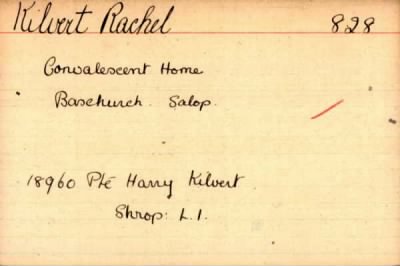 Kilvert Rachel 828
Convalescent Home
Baschurch. Salop.
18960 Pte Harry Kilvert
Shrop: L.I.